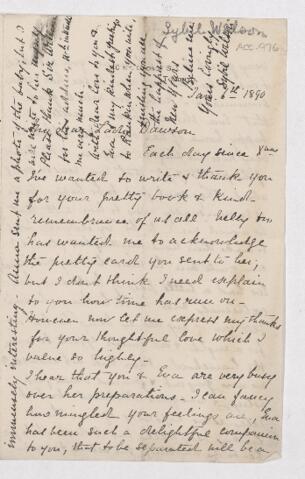 Jan 1st 1890
Lady Dawson
Each day since Xmas
I've wanted to write & thank you
for your pretty book & kind
remembrance of us all Nelly too
has wanted me to acknowledge
the pretty card you sent to her,
but I don't think I need explain
to you how time has run on.
However now let me express my thanks
for your thoughtful love which I
value so highly.
I hear that you & Eva are very busy
over her preparations. I can fancy
how mingled your feelings are, Eva
has been such a delightful companion
to you, that to be separated will be a
immensely interesting. Anna sent me a photo of the baby, but I
will write to her
Please thank Sir William
for his address, it
me very much.
With dear love to you &
Eva & my kindest
to Rankine when you write,
wishing you all
the happiest of
New Years
Believe me
Yours lovingly
Acc. 976